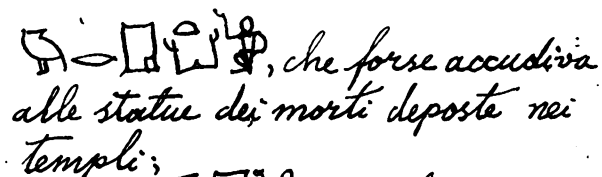 , che forse accudiva
alle statue dei morti deposte nei
templi;